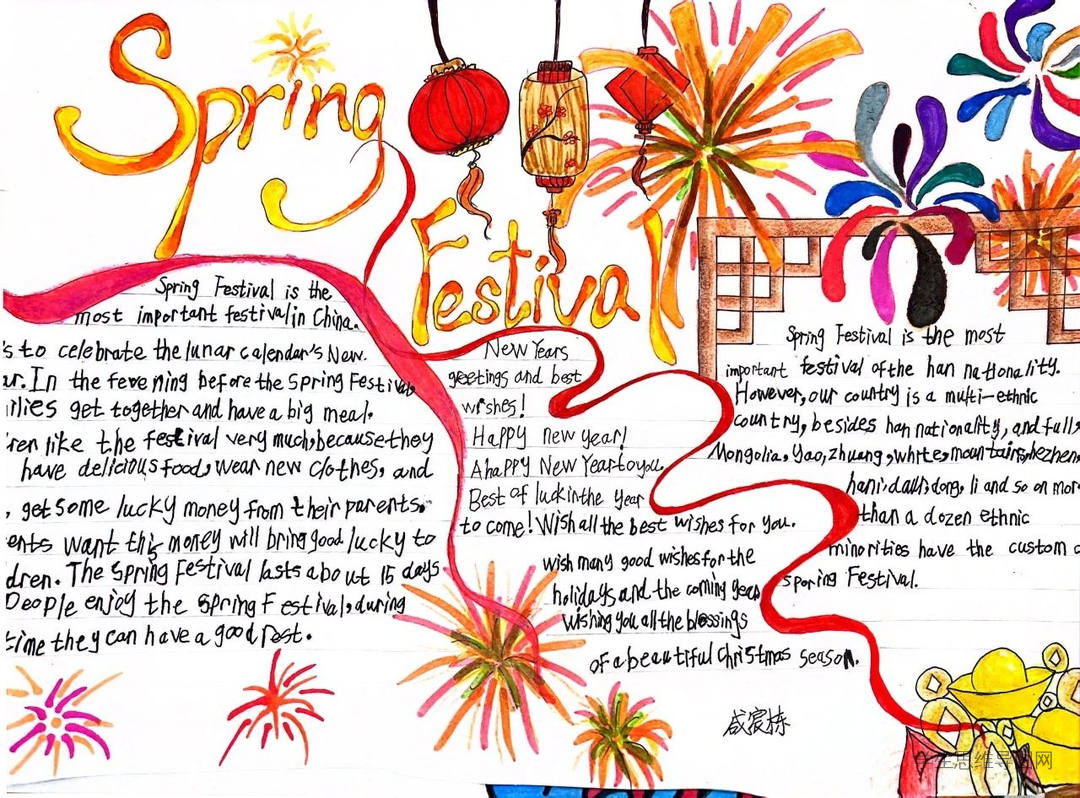 Spring
Festival
Spring Festival is the
most important festival in China.
's to celebrate the lunar calendar's New.
ar. In the feve ning before the Spring Festival,
ilies get together and have a big meal.
ren like the festival very much, because they
have delicious food, wear new clothes, and
, get some lucky money from their parents.
ents want this money will bring good lucky to
dren. The Spring Festival lasts about 15 days
People enjoy the Spring Festival, during
time they can have a good rest.
New Years
greetings and best
wishes!
Happy new year!
A happy New Year to you.
Best of luck in the year
to come! Wish all the best wishes for you.
wish many good wishes for the
holidays and the coming year
wishing you all the blessings
of a beautiful Christmas season.
Spring Festival is the most
important festival of the han nationality.
However, our country is a multi-ethnic
country, besides han nationality, and full,
Mongolia, Yao, zhuang, white, mountains, hezhen
hani, dali, dong, li and so on more
than a dozen ethnic
minorities have the custom o
sporing Festival.
思维导图网